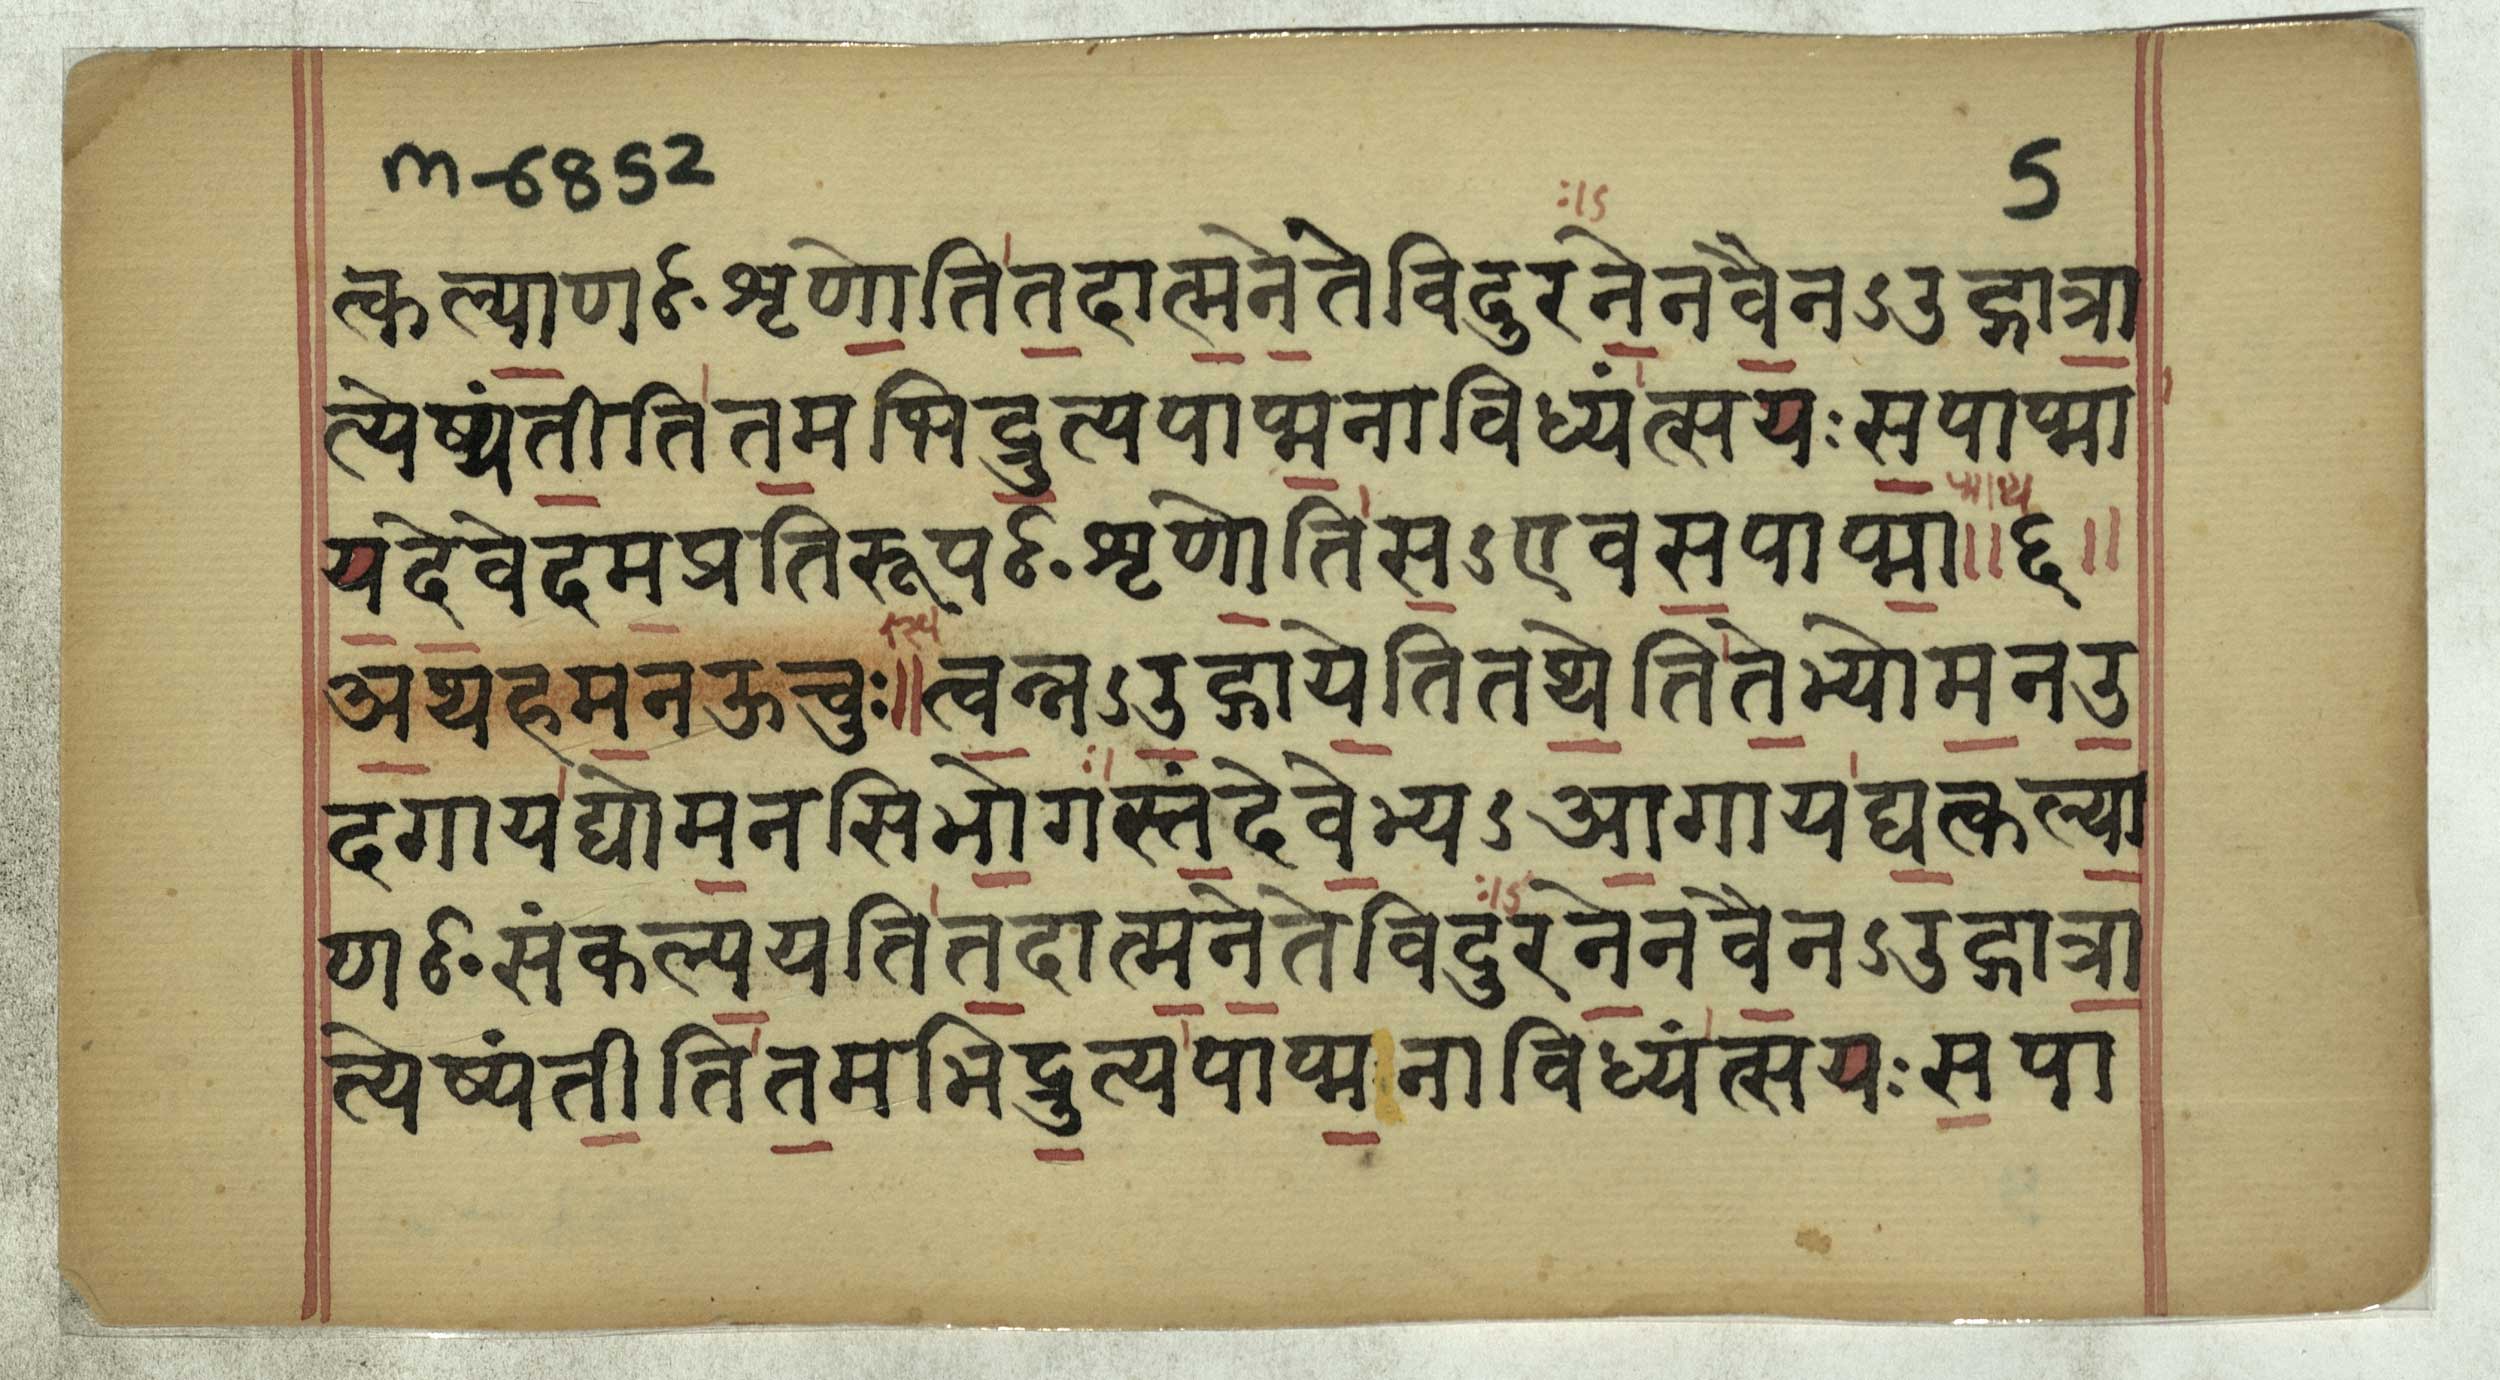 m-6852 5
त्कल्याणᳬ शृणोतितदात्मनेतेविदुरनेनवैनऽउद्गात्रा
त्येष्यंतीतितमभिद्रुत्यपाप्मनाविध्यंत्सयः सपाप्मा
यदेवेदमप्रतिरूपᳬ शृणोतिसऽएवसपाप्मा॥६॥
अथहमनऊचुः॥त्वन्नऽउद्गायेतितथेतितेभ्योमनउ
दगायद्योमनसिभोगस्तंदेवेभ्यऽआगायद्यत्कल्या
णᳬ संकल्पयतितदात्मनेतेविदुरनेनवैनऽउद्गात्रा
त्येष्यंतीतितमभिद्रुत्यपाप्मनाविध्यंत्सयः सपा